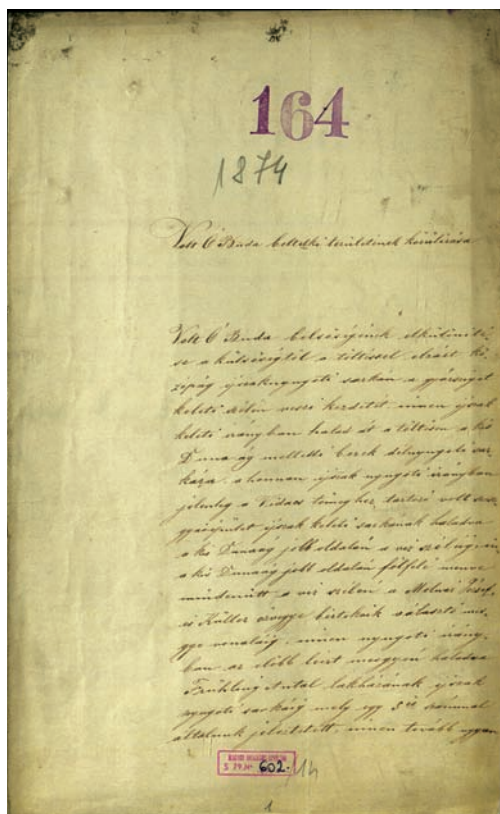 164
1874
Volt Ó Buda belteleki területének körülírása
Volt Ó Buda belsőségének elkülöníté-
se a külsőségtől a töltéssel elzárt kö-
zépág éjszaknyugoti sarkán a
keleti szélén veszi kezdetét innen éjszak
keleti irányban halad át a töltésen a kis
Duna ág melletti berek délnyugoti sar-
kára, a honnan éjszak nyugoti irányban
jelenleg a Vidacs tömeghez tartozó volt
éjszak keleti sarkának haladva
a kis Dunaág jobb oldalán a víz
a kis Dunaág jobb oldalán fölfelé menve
mindenütt a víz szélén a Molnár József
és özvegye birtokaik választó mes-
gye vonaláig, innen nyugoti irány-
ban az előbb leírt mesgyén haladva
Frühling Antal lakházának éjszak
nyugoti sarkáig mely egy számmal
általunk jeleztetett, innen tovább ugyan
S 79 № 602./14
1